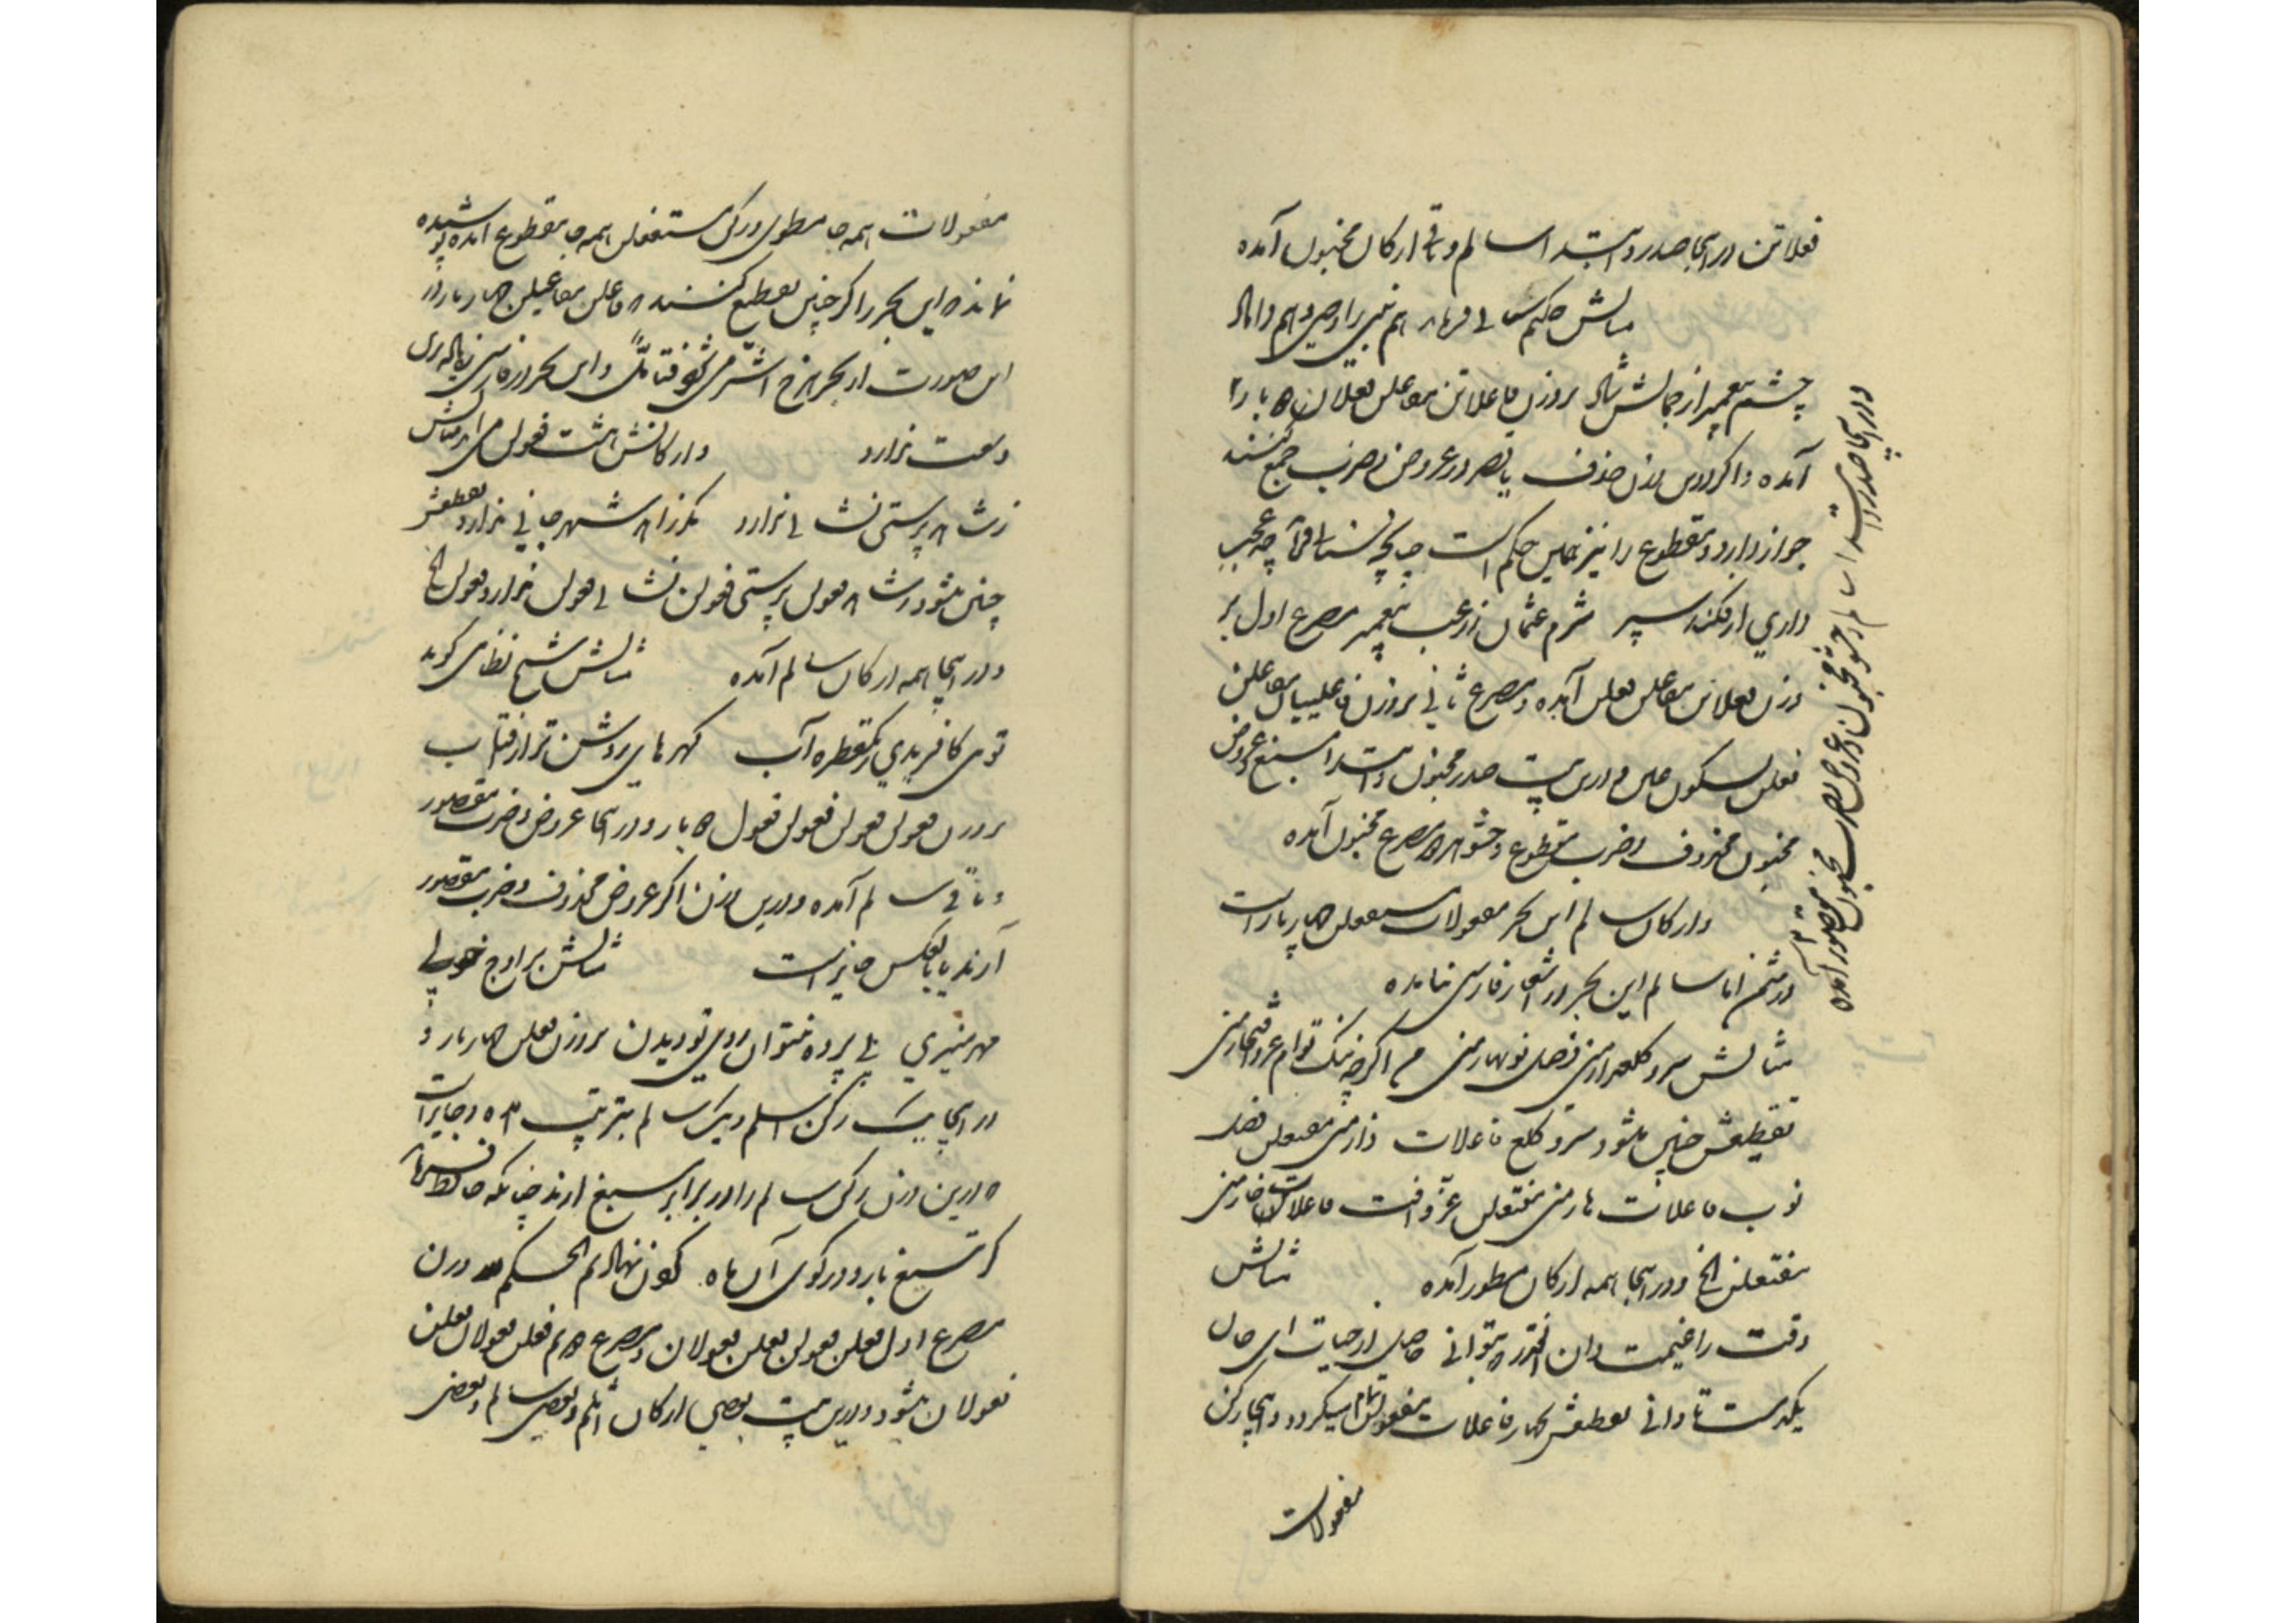 فعلاتن در اینجا صدر و ابتدا سالم و باقی ارکان مخبون آمده
مثالش حکیم سنائی فرماید هم نبی را وصی و هم داماد
چشم پیغمبر از جمالش شاد بروزن فاعلاتن مفاعلن فعلان دو بار
آمده و اگر درین وزن حذف یا قصر در عروض و ضرب جمع کنند
جواز دارد و مقطوع را نیز همین حکم است چنانچه سنائی چه عجب
داری ار فکند سپر شرم عثمان ز رعب پیغمبر مصرع اول بر
وزن فعلاتن مفاعلن فعلن آمده و مصرع ثانی بروزن فاعلییان مفاعلن
فعلن بسکون عین و درین بیت صدر مخبون و ابتدا مسبغ عروض
مخبون محذوف و ضرب مقطوع و حشو هر دو مصرع مخبون آمده
و ارکان سالم این بحر مفعولات مستفعلن چهار بار است
در مثمن اما سالم این بحر در اشعار فارسی نیامده
مثالش سرو گلعذار منی فصل نوبهار منی من اگرچه ننگ توام عز و افتخار منی
تقطیعش چنین میشود سرو گلع فاعلات ذار منی مفتعلن فصل
نوب فاعلات هار منی مفتعلن عز و افت فاعلات خار منی
مفتعلن الخ و در اینجا همه ارکان مطوی آمده مثالش
وقت را غنیمت دان آنقدر که بتوانی حاصل از حیات ای جان
یکدم است تا دانی تقطیعش بچهار فاعلات مفعولن تمام میگردد و اینجا رکن
مفعولات
و در اینجا صدر و ابتدا سالم و حشو مخبون و عروض و ضرب مخبون مقصور آمده
مفعولات همه جا مطوی و رکن مستفعلن همه جا مقطوع آمده پوشیده
نماند که این بحر را اگر چنین تقطیع کنند که فاعلن مفاعیلن چهار بار در
این صورت از بحر هزج اشتر می شود فتأمل و این بحر در فارسی زیاده ازین
وسعت ندارد و ارکانش هشت فعولن می آید مثالش
زشه پرستی نشانی ندارد جانی ندارد تقطیعش
چنین میشود فعولن پرستی فعولن نشانی فعولن ندارد فعولن الخ
و در اینجا همه ارکان سالم آمده مثالش شیخ نظامی گوید
توئی کافریدی ز یک قطره آب گهرهای روشن تر از آفتاب
بروزن فعولن فعولن فعولن فعول دو بار و در اینجا عروض و ضرب مقصور
و باقی سالم آمده و درین وزن اگر عروض محذوف و ضرب مقصور
آرند یا بالعکس جایز است مثالش بر اوج خوبی
مهر منیری بی پرده نتوان روی تو دیدن بروزن فعلن چهار بار و
در اینجا یک رکن اثلم و یک سالم بترتیب آمده و جایز است
که درین وزن رکن سالم را در برابر مسبغ آرند چنانکه حافظ فرماید
گر تیغ بارد در کوی آن ماه گردن نهادیم الحکم لله وزن
مصرع اول فعلن فعولن فعلن فعولان و مصرع دوم فعلن فعولان فعلن
فعولان میشود و درین بیت بعضی ارکان اثلم و بعضی سالم و بعضی